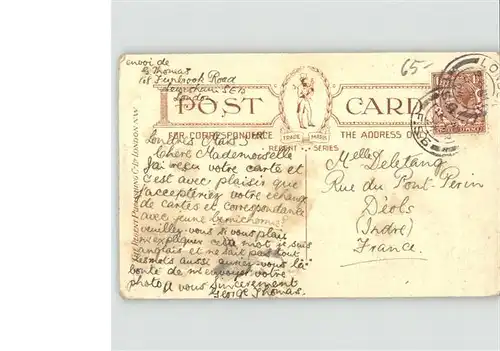 envoi de
G Thomas
Fernbrook Road
Lewisham SE13
London
65-
POST CARD
FOR CORRESPONDENCE THE ADDRESS O
TRADE MARK
REGENT SERIES
THE REGENT PUBLISHING Co Ld LONDON N.W.
Londres Mars 3
Chère Mademoiselle
J'ai reçu votre carte et
c'est avec plaisir que
j'accepterez votre échange
de cartes et correspondante
avec jeune
veuillez-vous s'il vous plaît
m'expliquer cela mot je suis
anglais et ne sait pas tout
les mots aussi auriez-vous la
bonté de m'envoyer votre
photo A vous sincerement
George Thomas.
Melle Deletang
Rue du Pont-Perin
Déols
(Indre)
France